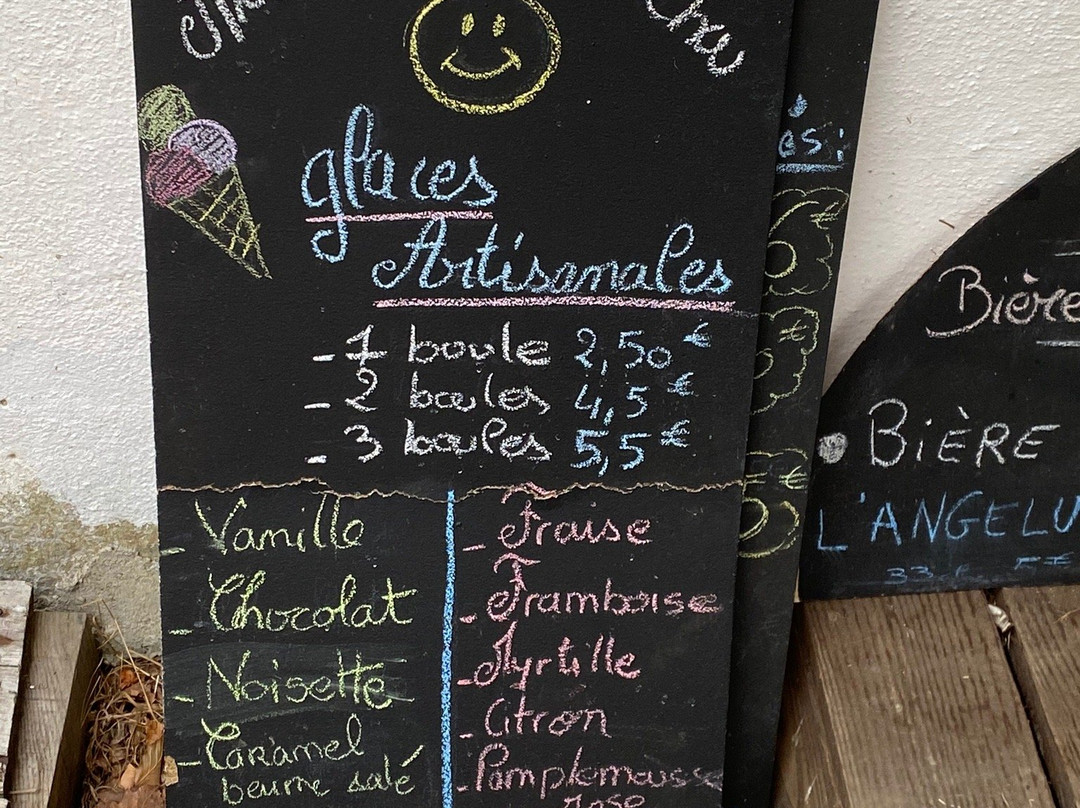 Glaces
Artisanales
- 1 boule 2,50€
- 2 boules 4,5€
- 3 boules 5,5€
- Vanille
- Chocolat
- Noisette
- Caramel
beurre salé
- Fraise
- Framboise
- Myrtille
- Citron
- Pamplemousse
rose
és:
€
€
€
Bière
BIÈRE
L'ANGELU